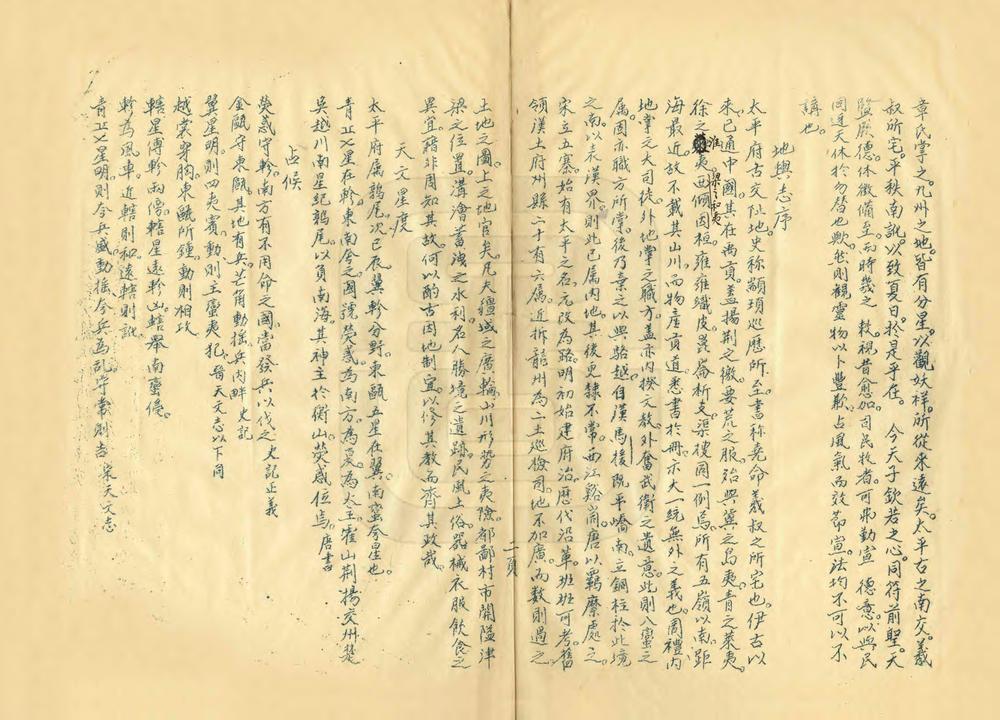 章氏掌之九州之地皆有分星以觀妖祥所從來遠矣太平古之南交羲
叔所宅平秩南訛以致夏日於是乎在 今天子欽若之心同符前聖天
監厥德休徵備至而時幾之 敕視昔愈加司民牧者可弗勤宣 德意以與民
同迓天休於勿替也歟然則觀靈物以卜豐歉占風氣而效節宣法均不可以不
講也。
地輿志序
太平府古交阯地史称顓頊巡歷所至書称堯命羲叔之所宅也伊古以
來已通中國其在禹貢盖揚荆之徼要荒之服殆與冀之島夷青之萊夷
徐之淮夷梁之和夷西傾因桓雍雍織皮崑崙析支渠搜同一例焉所有五嶺以南距
海最近故不載其山川而物產貢道悉書於冊示大一統無外之義也周禮内
地掌之大司徒外地掌之職方盖亦内揆文教外奮武衛之遺意此則八蠻之
属固亦職方所掌後乃章之以與駱越自漢馬援既平嶠南立銅柱於此境
之南以表漢界則此已属内地其後更隸不常西江谿峝唐以羈縻處之
宋立五寨始有太平之名元改為路明初始建府治歷代沿革班班可考舊
領漢土府州縣二十有六属近拆龍州為二土巡檢司地不加廣而数則過之
二頁
土地之圖上之地官矣凡夫疆域之廣輪山川形勢之夷險都鄙村市関隘津
梁之位置溝澮蓄洩之水利名人勝境之遺跡民風土俗器械衣服飲食之
異宜豁非周知其故何以酌古因地制宜以修其教而齊其政哉
天文星度
太平府属鶉尾次巳辰翼軫分野東甌五星在翼南蠻分星也
青丘七星在軫東南今之國號熒惑為南方為夏為火主霍山荆揚交州楚
吳越川南星紀鶉尾以負南海其神主於衡山熒惑位焉唐書
占候
熒惑守軫南方有不用命之國當發兵以伐之史記正義
金甌守東甌其地有兵芒角動搖兵内畔 史記
翼星明則四夷賓動則主蠻夷犯 晉天文志以下同
越裳穿胸東甌所鍾動則相攻
轄星傅軫兩傍轄星遠軫凶轄舉南蠻侵。
軫為風車近轄則和遠轄則訛
青丘七星明則今兵盛動搖今兵為乱守常則吉 宋天文志